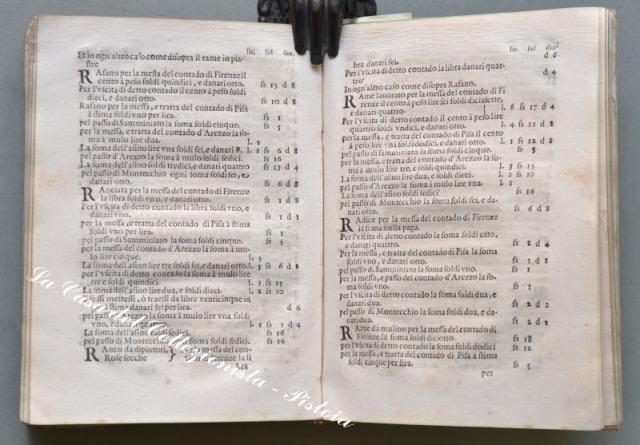 lir. sol dan.
Et in ogn'altro caso come disopra il rame in pia-
stre
RAfano per la messa del contado di Firenze il
cento à peso soldi quindici, e danari otto. ss 15 d 8
Per l'vscita di detto contado il cento à peso soldi
dieci, e danari otto. ss 10 d 8
Rafano per la messa, e tratta del contado di Pisa
à stima soldi vno per lira. ss 1
pel passo di Samminiato la soma soldi cinque. ss 5
per la messa, e tratta del contado d'Arezzo la so-
ma à mulo lire dua. l. 2
La soma dell'asino lire vna soldi sei, e danari 8. l. 1 ss 6 d 8
pel passo d'Arezzo la soma à mulo soldi sedici. ss 16
La soma dell'asino soldi tredici, e danari quattro ss 13 d 4
pel passo di Montecchio ogni soma soldi sei, e
danari otto. ss 6 d 8
RAnciata per la messa del contado di Firenze
la libra soldi vno, e danari otto. ss 1 d 8
Per l'vscita di detto contado la libra soldi vno, e
danari vno. ss 1 d 1
per la messa, e tratta del contado di Pisa à stima
soldi vno per lira. ss 1
pel passo di Samminiato la soma soldi cinque. ss 5
per la messa del contado d'Arezzo la soma à mu
lo lire cinque. l. 5
La soma dell'asino lire tre soldi sei, e danari otto. l. 3 ss 6 d 8
per l'vscita di detto contado la soma à mulo lire
tre, e soldi quindici. l. 3 ss 15
La soma dell'asino lire dua, e soldi dieci. l. 2 ss 10
e traessi da libre venticinque in
stima danari sei per lira. d 6
pel passo d'Arezzo la soma à mulo lire vna soldi
vno, e danari quattro. l. 1 ss 1 d 4
La soma dell'asino soldi sedici. ss 16
pel passo di Montecchio la soma soldi sedici. ss 16
RAnco da dipintori, } per la messa del con-
Rose secche } di Firenze la li
bra
lir. sol dan.
bra danari sei. d 6
Per l'vscita di detto contado la libra danari quat-
tro. d 4
In ogn'altro caso come disopra Rafano.
RAme lauorato per la messa del contado di Fi
renze il cento à peso lire sei soldi diciasette,
e danari quattro. l. 6 ss 17 d 4
Per l'vscita di detto contado il cento à peso lire
quattro soldi vndici, e danari otto. l. 4 ss 11 d 8
per la messa, e tratta del contado di Pisa il cento
à peso lire vna soldi dodici, e danari otto. l. 1 ss 12 d 8
pel passo di samminiato la soma soldi cinque. ss 5
per la messa, e tratta del contado d'Arezzo la so-
ma à mulo lire tre, e soldi quindici. l. 3 ss 15
La soma dell'asino lire dua, e soldi dieci. l. 2 ss 10
pel passo d'Arezzo la soma à mulo lire vna. l. 1
La soma dell'asino soldi sedici. ss 16
pel passo di Montecchio la soma soldi sei, e danari
otto. ss 6 d 8
RAdice per la messa del contado di Firenze
la soma nulla paga.
Per l'vscita di detto contado la soma soldi otto, e
danari quattro. ss 8 d 4
per la messa, e tratta del contado di Pisa la soma
soldi vno, e danari otto. ss 1 d 8
pel passo di Samminiato la soma soldi vno. ss 1
per la messa del contado d'Arezzo la soma soldi
cinque. ss 5
per l'vscita di detto contado la soma soldi dua, e
danari dua. ss 2 d 2
pel passo di Montecchio la soma soldi dua, e da-
nari dua. ss 2 d 2
RAzze da mulino per la messa del contado di
Firenze la soma soldi diciotto. ss 18
per l'vscita di detto contado la soma soldi dodici ss 12
per la messa, e tratta del contado di Pisa à stima
soldi cinque per lira. ss 5
per
La Casa del Collezionista - Pistoia